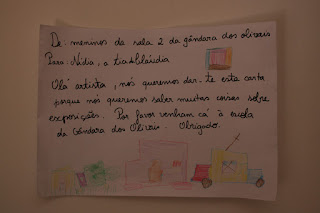 De: meninos da sala 2 da gândara dos olivais
Para: Nádia, a tia Claúdia
Olá artista, nós queremos dar-te esta carta
porque nos queremos saber muitas coisas sobre
exposições. Por favor venham cá à escola
de Gândara dos Olivais. Obrigado.